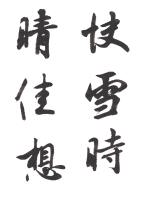 快雪時
晴佳想